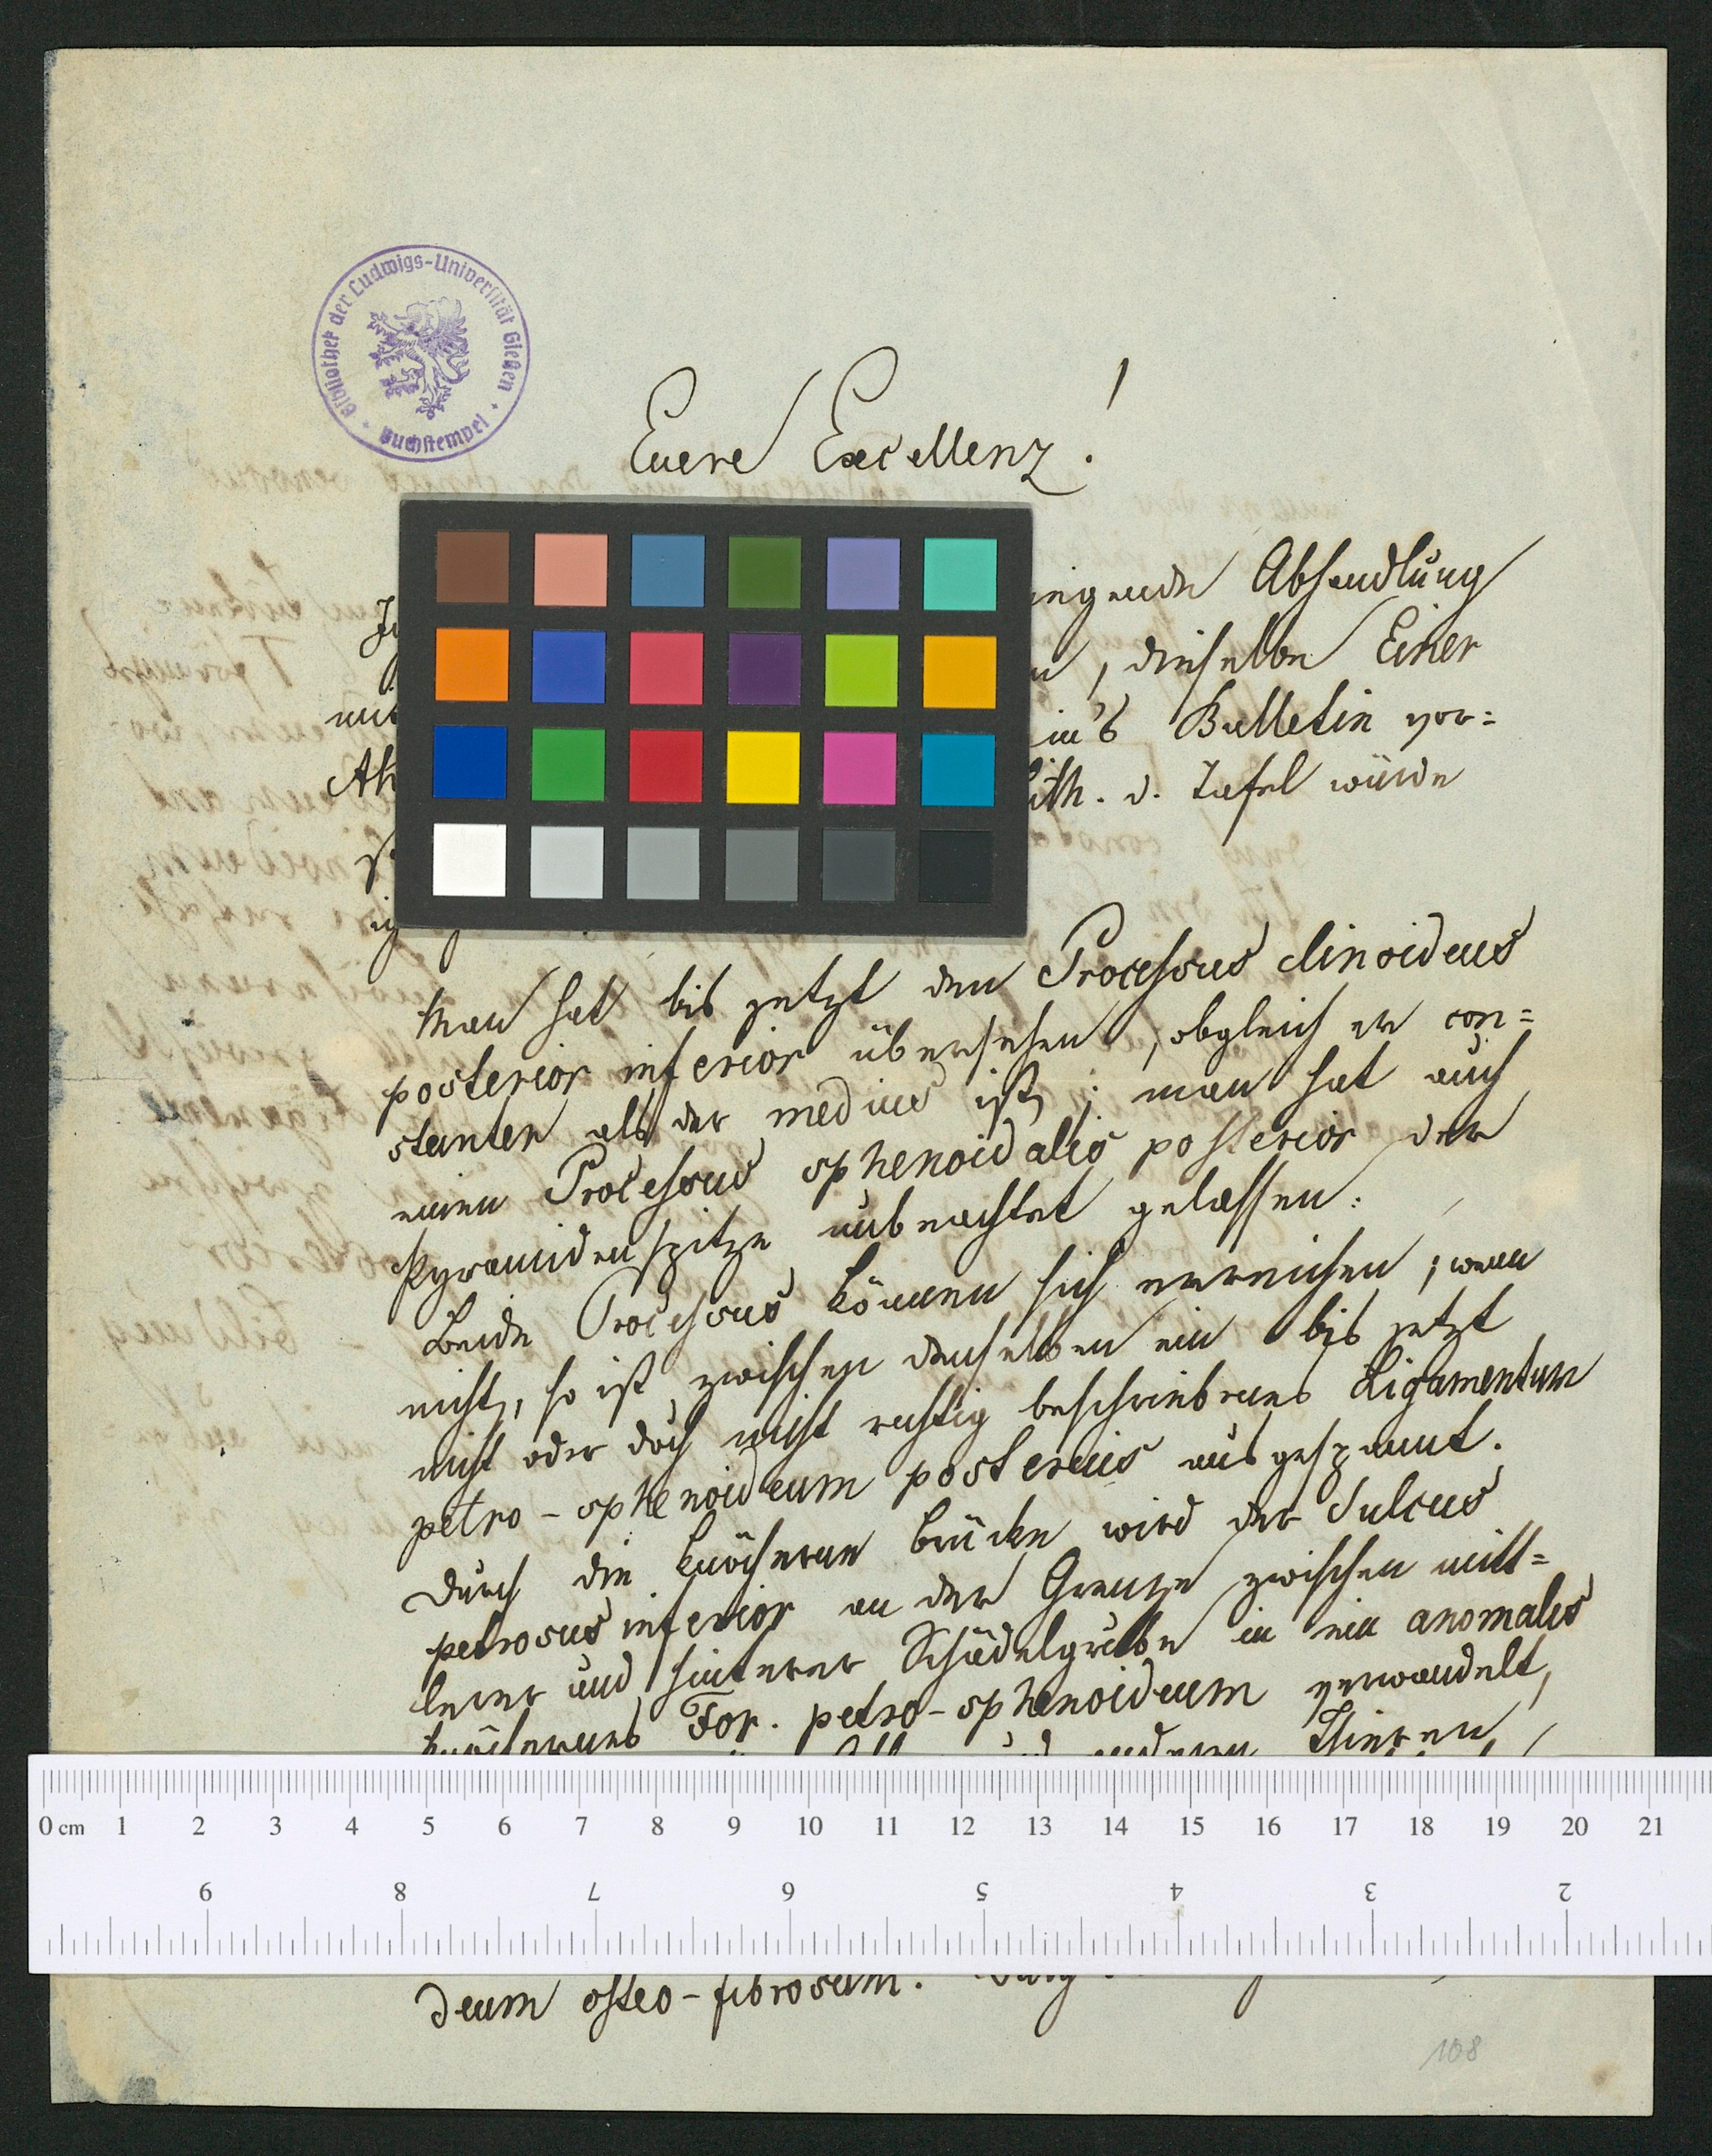 Bibliothek der Ludwigs-Universität Gießen
Buchstempel
Euere Excellenz!
Abhandlung
, dieselbe Einer
in's Bulletin vor=
Lith. d. Tafel würde
Man hat bis jetzt den Processus clinoideus
posterior inferior übersehen, obgleich er con=
stanter als der medius ist; man hat auch
einen Processus sphenoidalis posterior der
Pyramidenspitze unbeachtet gelassen.
Beide Processus können sich erreichen; wenn
nicht, so ist zwischen denselben ein bis jetzt
nicht oder doch nicht richtig beschriebenes Ligamentum
petro-sphenoideum posterius ausgespannt.
Durch die knöcherne Brücke wird der Sulcus
petrosus inferior an der Grenze zwischen mitt=
lerer und hinterer Schädelgrube in ein anomales
knöchernes For. petro-sphenoideum verwandelt,
und anderen Thieren
0 cm 1 2 3 4 5 6 7 8 9 10 11 12 13 14 15 16 17 18 19 20 21
9 8 7 6 5 4 3 2
deum osteo-fibrosum.
108